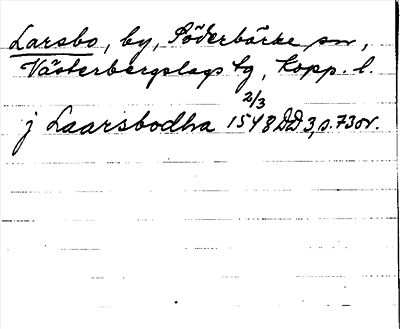 Larsbo, by, Söderbärke sn,
Västerbergslags tg, Kopp. l.
j Laarsbodha 2/3 1548 DD 3, s. 73 or.